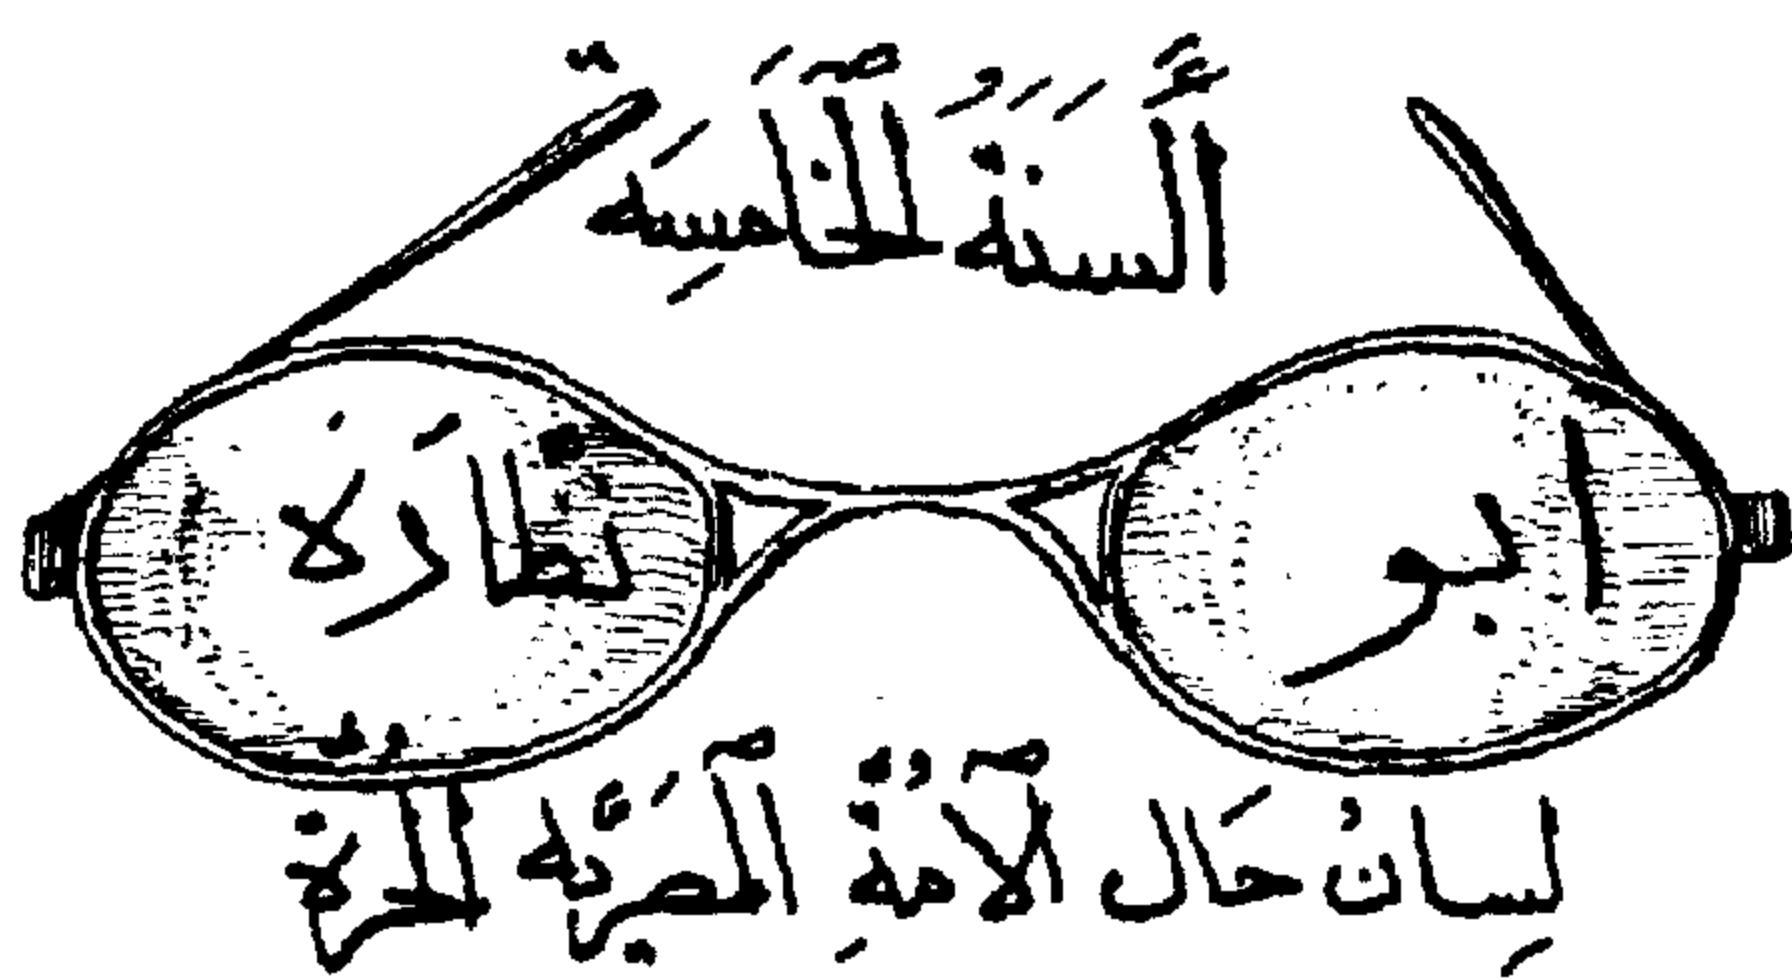 اَلسَّنَةُ الْخَامِسَةِ
ابو نظارَة
لِسانُ حَال الْأمُّةِ الْمَصِرِيَّه الحُرّة